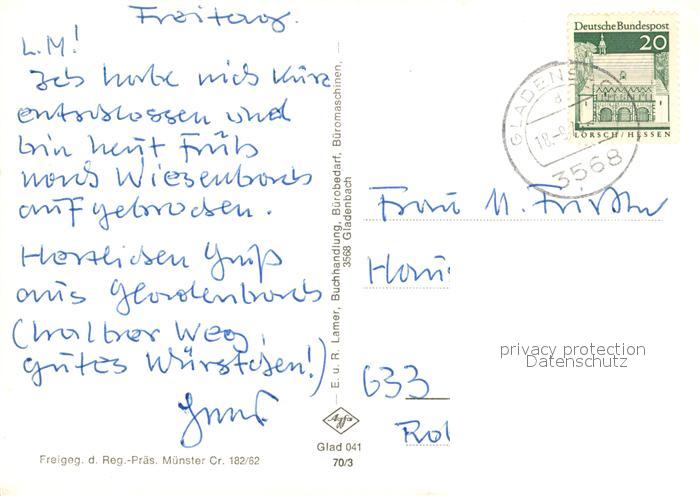 Freitag.
L.M!
Ich habe mich kurz
entschlossen und
bin heut Früh
nach Wiesenbach
aufgebrochen.
Herzlichen Gruß
aus Gladenbach
(halber Weg,
gutes Würstchen!)
Deutsche Bundespost
20
LORSCH/HESSEN
GLADENB
18.-9
3568
Frau M.
633
E. u. R. Lamer, Buchhandlung, Bürobedarf, Büromaschinen,
3568 Gladenbach
privacy protection
Datenschutz
Agfa
Glad 041
70/3
Freigeg. d. Reg.-Präs. Münster Cr. 182/62